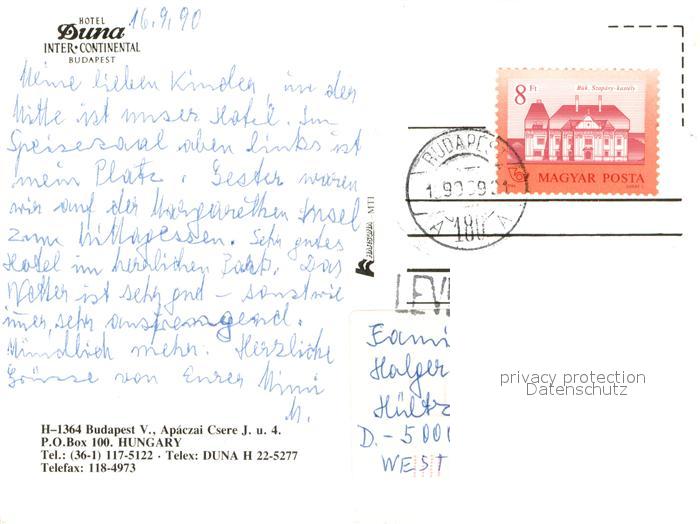 HOTEL
Duna
INTER·CONTINENTAL
BUDAPEST
16.9.90
Meine lieben Kinder, in der
Mitte ist unser Hotel. Im
Speisesaal oben links ist
mein Platz. Gester waren
wir auf der Margarethen Insel
zum Mittagessen. Sehr gutes
Hotel im herrlichen Park. Das
Wetter ist sehr gut – sonst wie
immer, sehr anstrengend.
Mündlich mehr. Herzliche
Grüsse von Eurer Mimi
M.
H–1364 Budapest V., Apáczai Csere J. u. 4.
P.O.Box 100. HUNGARY
Tel.: (36-1) 117-5122 · Telex: DUNA H 22-5277
Telefax: 118-4973
MTI
8 Ft
Bük, Szapáry-kastély
MAGYAR POSTA
BUDAPEST
180
LEVI
Fami
Holger
Hültz
D.-5001
WEST
privacy protection
Datenschutz